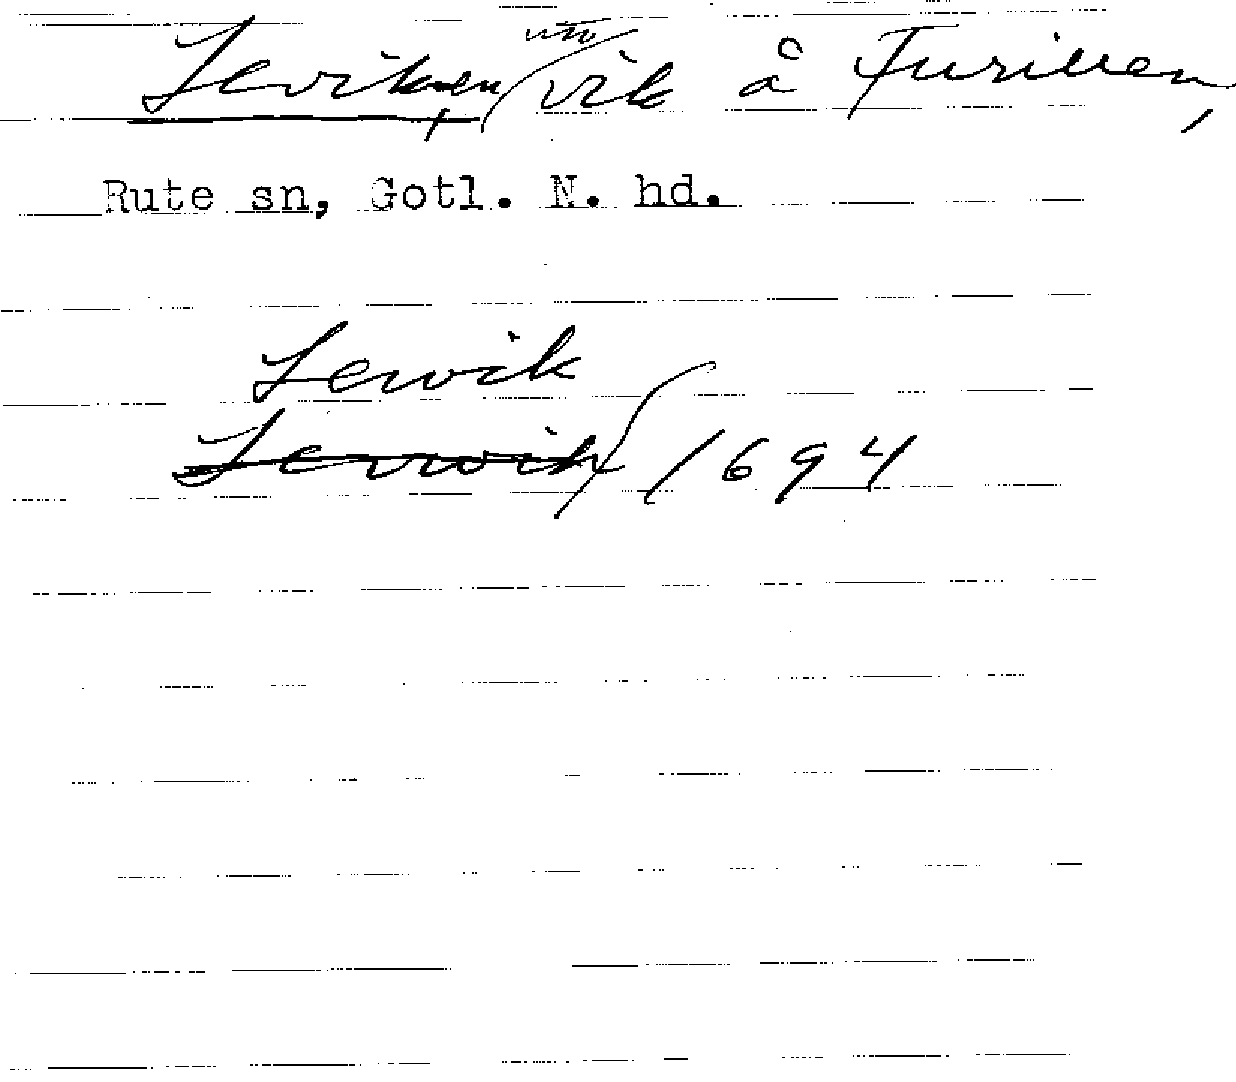 Leviken, vik å Furillen,
Rute sn, Gotl. N. hd.
Lewik
Lerwik 1694